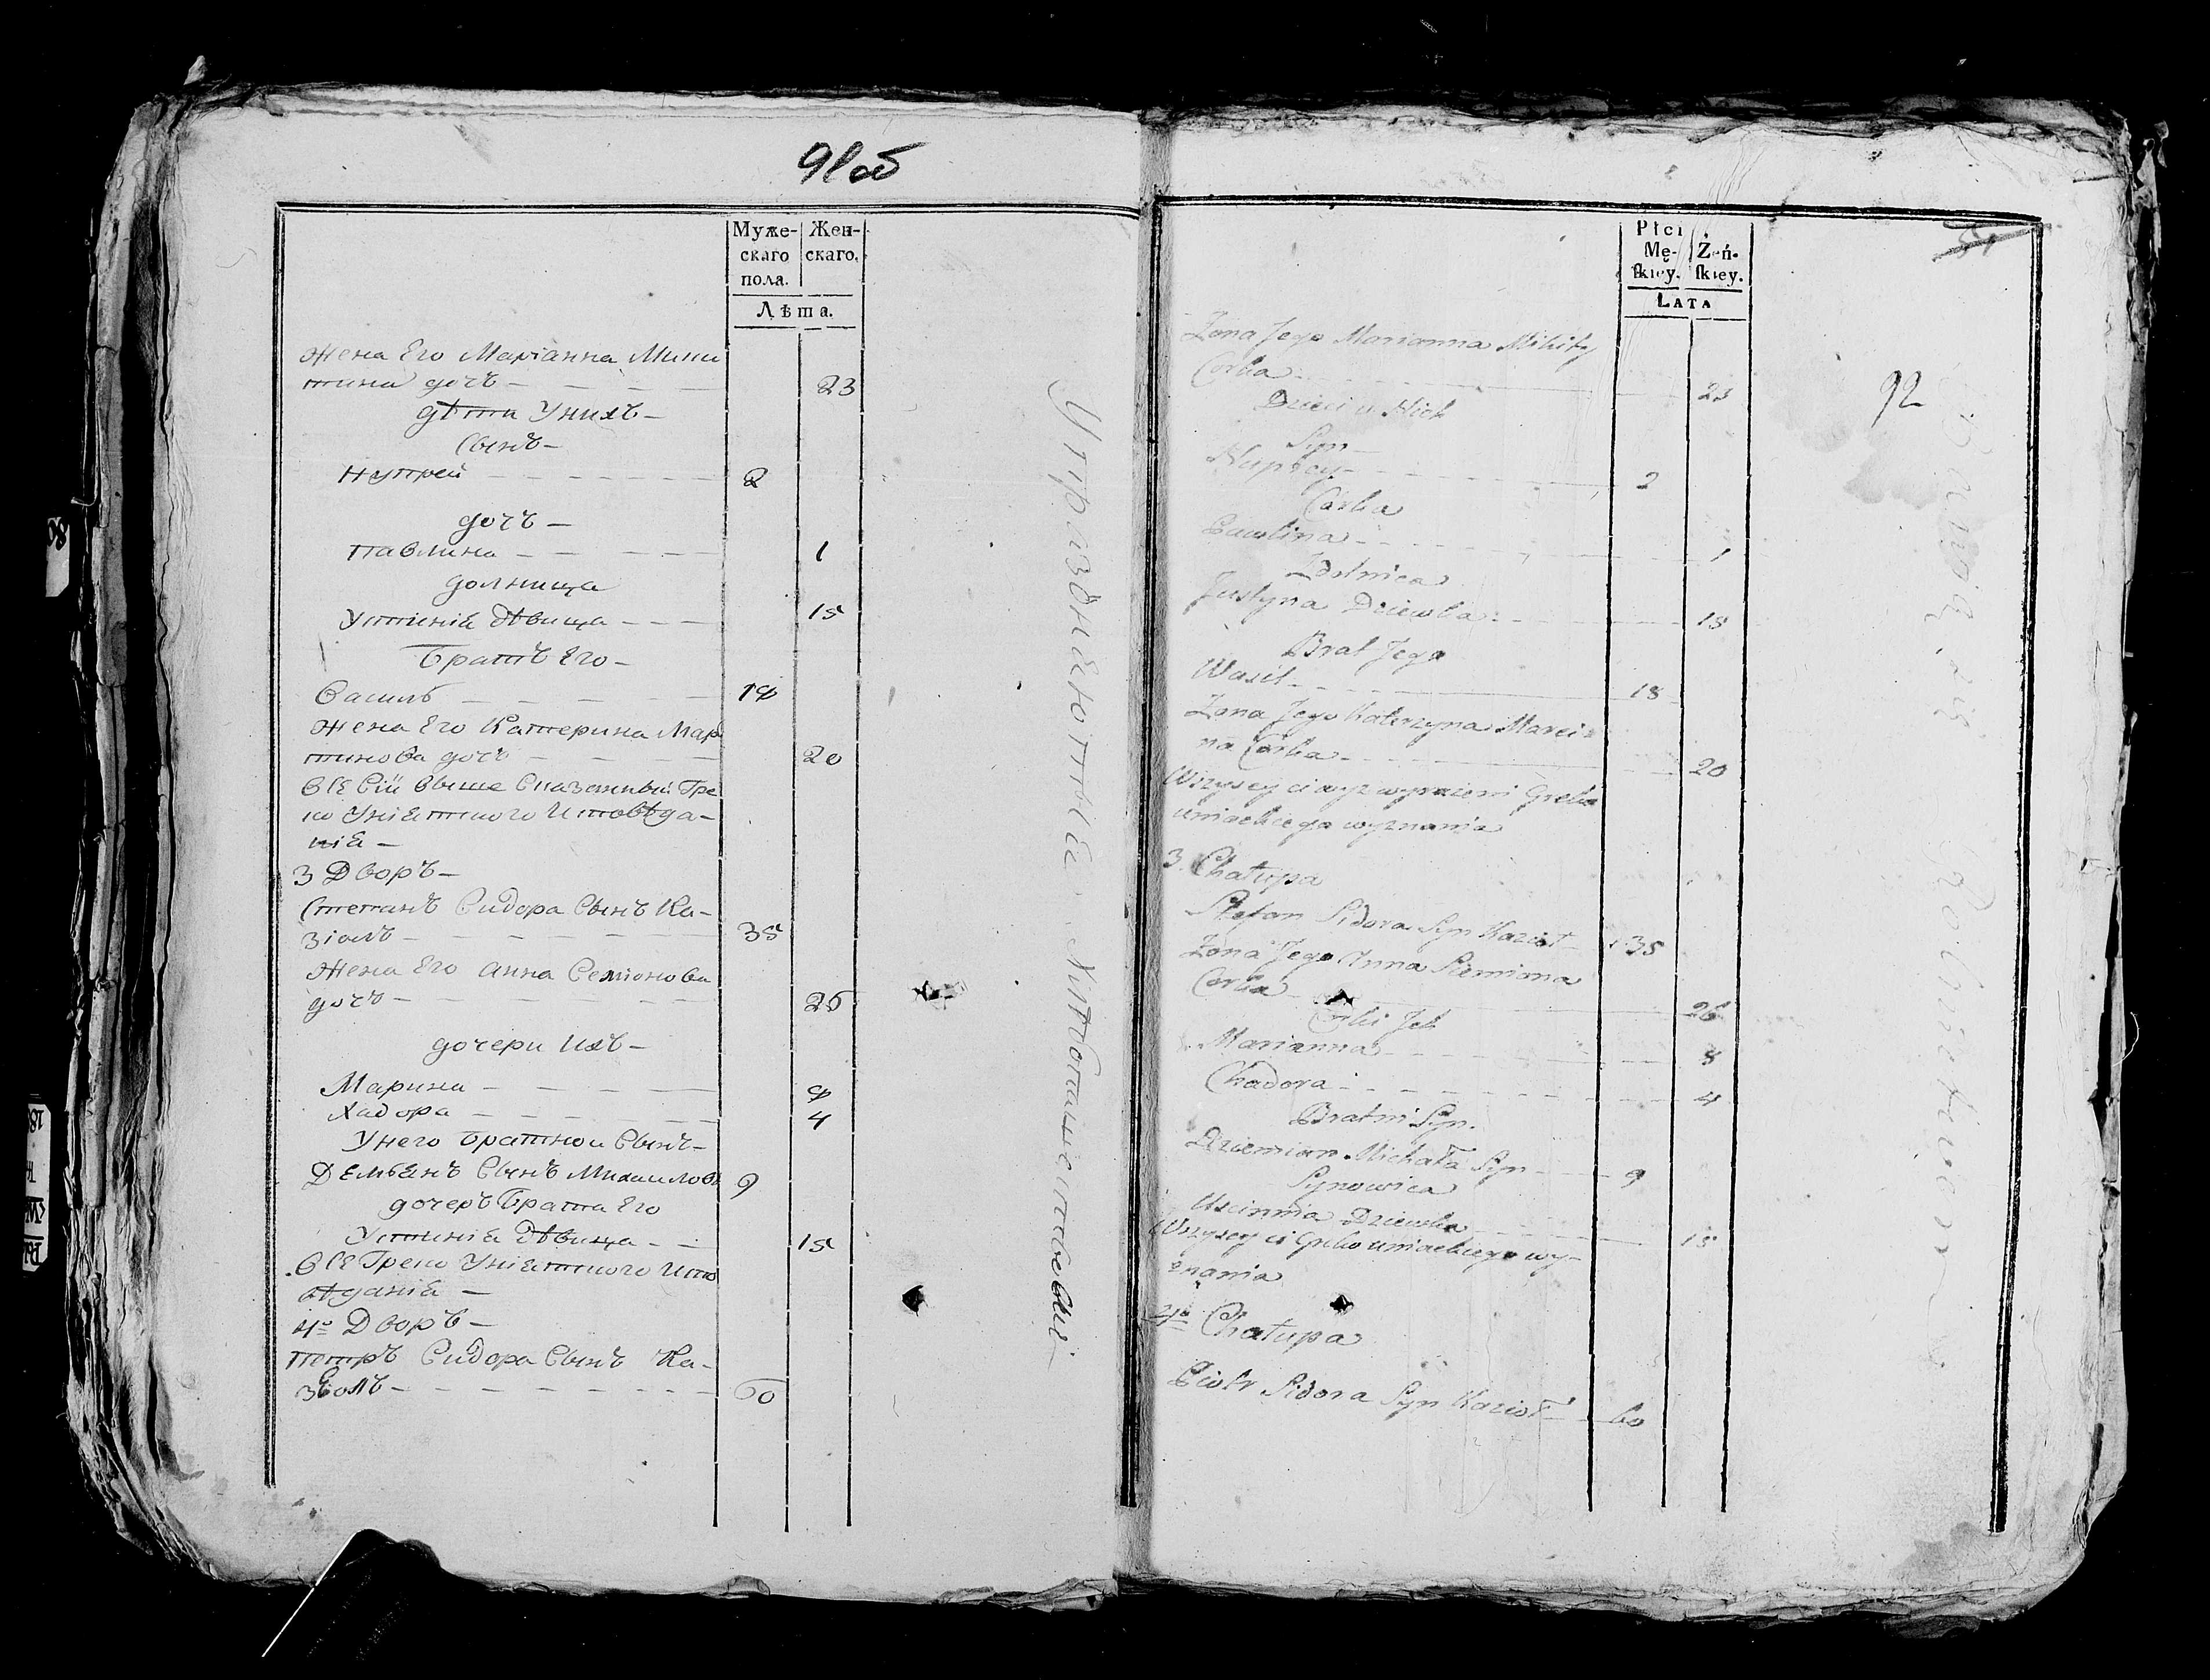 91об
Муже-
скаго
пола.
Жен-
скаго.
Лѣта.
Жена Его Марiанна Мики
тина дочъ — — — — 23
дѣти Унихъ —
Сынъ —
Нупрей — — — — — — 2
дочъ —
Павлина — — — — — 1
дольница
Устинiя дѣвица — — — 15
Братъ Его —
Василь — — — — — 18
Жена Его Катерина Мар
тинова дочъ — — — — 20
Всѣ Сiи Выше Сказанный Гре
ко Унiятского Исповѣда-
нiя —
3 Дворъ —
Степанъ Сидора Сынъ Ка-
зiолъ — — — — — — 35
Жена Его Анна Семiонова
дочъ — — — — — 26
дочери Ихъ —
Марина — — — — 8
Хадора — — — — — 4
Унего Братнои Сынъ —
Демьянъ Сынъ Михаиловъ 9
дочеръ Брата Его
Устинiя дѣвица — — 15
Всѣ Греко Унiятского Испо
вѣданiя —
4º Дворъ —
Петръ Сидора Сынъ Ка-
зёолъ — — — — — — — 60
Упраздненотнiя
Płci
Mę-
skiey.
Żeń-
skiey.
LATA
92
Zona Jego Marianna Mikity
Corka — 23
Dzieci u Nich
Syn —
Nuprey — — — — 2
Corka
Pawlina — — — 1
Zdolnica
Justyna Dziewka — — 15
Brat Jego
Wasil — — 18
Zona Jego Katerzyna Marci-
na Corka — — 20
Wszyscy ci wyz wyrazeni Greko
uniackiego wyznania
3 Chałupa
Stefan Sidora Syn Kazioł — 35
Zona Jego Anna Siemiona
Corka — 26
Corki Ich
Marianna — — 8
Chadora — — — — 4
Bratni Syn.
Dziemian Michała Syn — — 9
Synowica
Uscinnia Dziewka — 15
Wszyscy ci Greko uniackiego wy-
znania
4º Chałupa
Piotr Sidora Syn Kazioł — 60